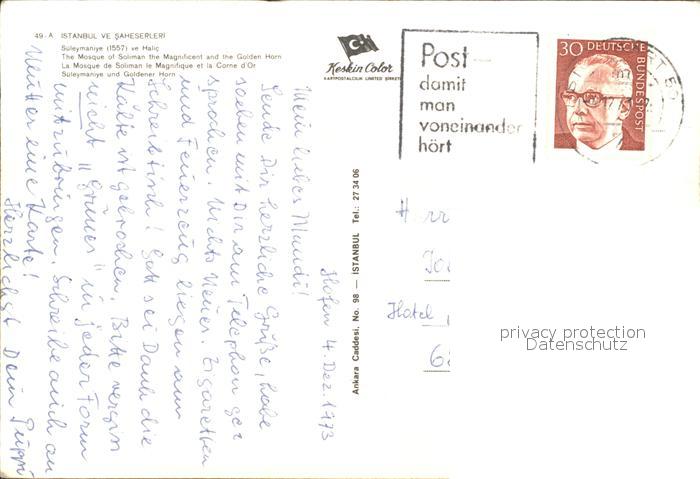 49-A ISTANBUL VE ŞAHESERLERİ
Süleymaniye (1557) ve Haliç
The Mosque of Soliman the Magnificent and the Golden Horn
La Mosque de Soliman le Magnifique et la Corne d'Or
Süleymaniye und Goldener Horn
Keskin Color
KARTPOSTALCILIK LIMITED ŞİRKETİ
Ankara Caddesi. No. 98 — ISTANBUL Tel.: 27 34 06
Post —
damit
man
voneinander
hört
30 DEUTSCHE
BUNDESPOST
4. Dez. 1973
Mein liebes Mundi!
Sende Dir herzliche Grüße, habe
soeben mit Dir am Telephon ge
sprochen. Nichts Neues. Zigaretten
und Feuerzeug liegen am
Schreibtisch! Gott sei Dank die
Kälte ist gebrochen. Bitte vergiss
nicht "Grünes" in jeder Form
mitzubringen. Schreibe auch an
Mutter eine Karte!
Herzlichst Dein Puppi
Herr
Hotel
privacy protection
Datenschutz